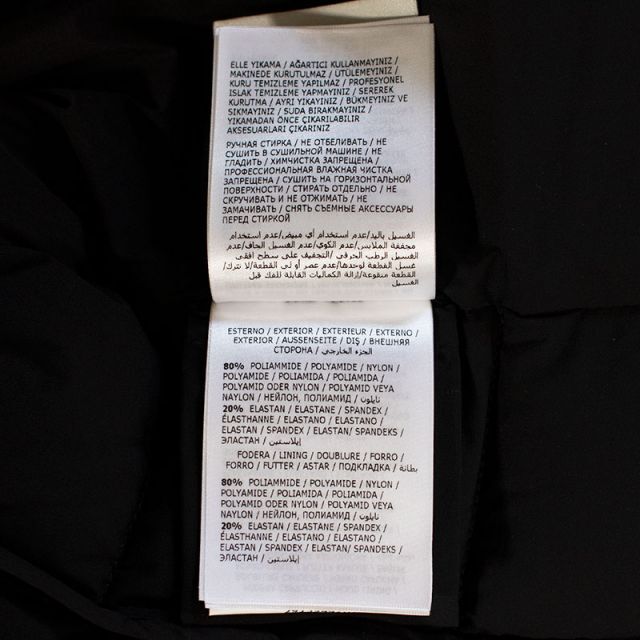 ELLE YIKAMA / AĞARTICI KULLANMAYINIZ /
MAKINEDE KURUTULMAZ / ÜTÜLEMEYINIZ /
KURU TEMIZLEME YAPILMAZ / PROFESYONEL
ISLAK TEMIZLEME YAPMAYINIZ / SEREREK
KURUTMA / AYRI YIKAYINIZ / BÜKMEYINIZ VE
SIKMAYINIZ / SUDA BIRAKMAYINIZ /
YIKAMADAN ÖNCE ÇIKARILABILIR
AKSESUARLARI ÇIKARINIZ
РУЧНАЯ СТИРКА / НЕ ОТБЕЛИВАТЬ / НЕ
СУШИТЬ В СУШИЛЬНОЙ МАШИНЕ / НЕ
ГЛАДИТЬ / ХИМЧИСТКА ЗАПРЕЩЕНА /
ПРОФЕССИОНАЛЬНАЯ ВЛАЖНАЯ ЧИСТКА
ЗАПРЕЩЕНА / СУШИТЬ НА ГОРИЗОНТАЛЬНОЙ
ПОВЕРХНОСТИ / СТИРАТЬ ОТДЕЛЬНО / НЕ
СКРУЧИВАТЬ И НЕ ОТЖИМАТЬ / НЕ
ЗАМАЧИВАТЬ / СНЯТЬ СЪЕМНЫЕ АКСЕССУАРЫ
ПЕРЕД СТИРКОЙ
الغسيل باليد/عدم استخدام أي مبيض/عدم استخدام
مجففة الملابس/عدم الكوي/عدم الغسيل الجاف/عدم
الغسيل الرطب الحرفي/التجفيف على سطح افقي
غسيل القطعة لوحدها/عدم عصر أو لي القطعة/لا تترك/
القطعة منقوعة/إزالة الكماليات القابلة للفك قبل
الغسيل
ESTERNO / EXTERIOR / EXTERIEUR / EXTERNO /
EXTERIOR / AUSSENSEITE / DIŞ / ВНЕШНЯЯ
СТОРОНА / الجزء الخارجي
80% POLIAMMIDE / POLYAMIDE / NYLON /
POLYAMIDE / POLIAMIDA / POLIAMIDA /
POLYAMID ODER NYLON / POLYAMID VEYA
NAYLON / НЕЙЛОН, ПОЛИАМИД / نايلون
20% ELASTAN / ELASTANE / SPANDEX /
ÉLASTHANNE / ELASTANO / ELASTANO /
ELASTAN / SPANDEX / ELASTAN/ SPANDEKS /
ЭЛАСТАН / إيلاستين
FODERA / LINING / DOUBLURE / FORRO /
FORRO / FUTTER / ASTAR / ПОДКЛАДКА / بطانة
80% POLIAMMIDE / POLYAMIDE / NYLON /
POLYAMIDE / POLIAMIDA / POLIAMIDA /
POLYAMID ODER NYLON / POLYAMID VEYA
NAYLON / НЕЙЛОН, ПОЛИАМИД / نايلون
20% ELASTAN / ELASTANE / SPANDEX /
ÉLASTHANNE / ELASTANO / ELASTANO /
ELASTAN / SPANDEX / ELASTAN/ SPANDEKS /
ЭЛАСТАН / إيلاستين